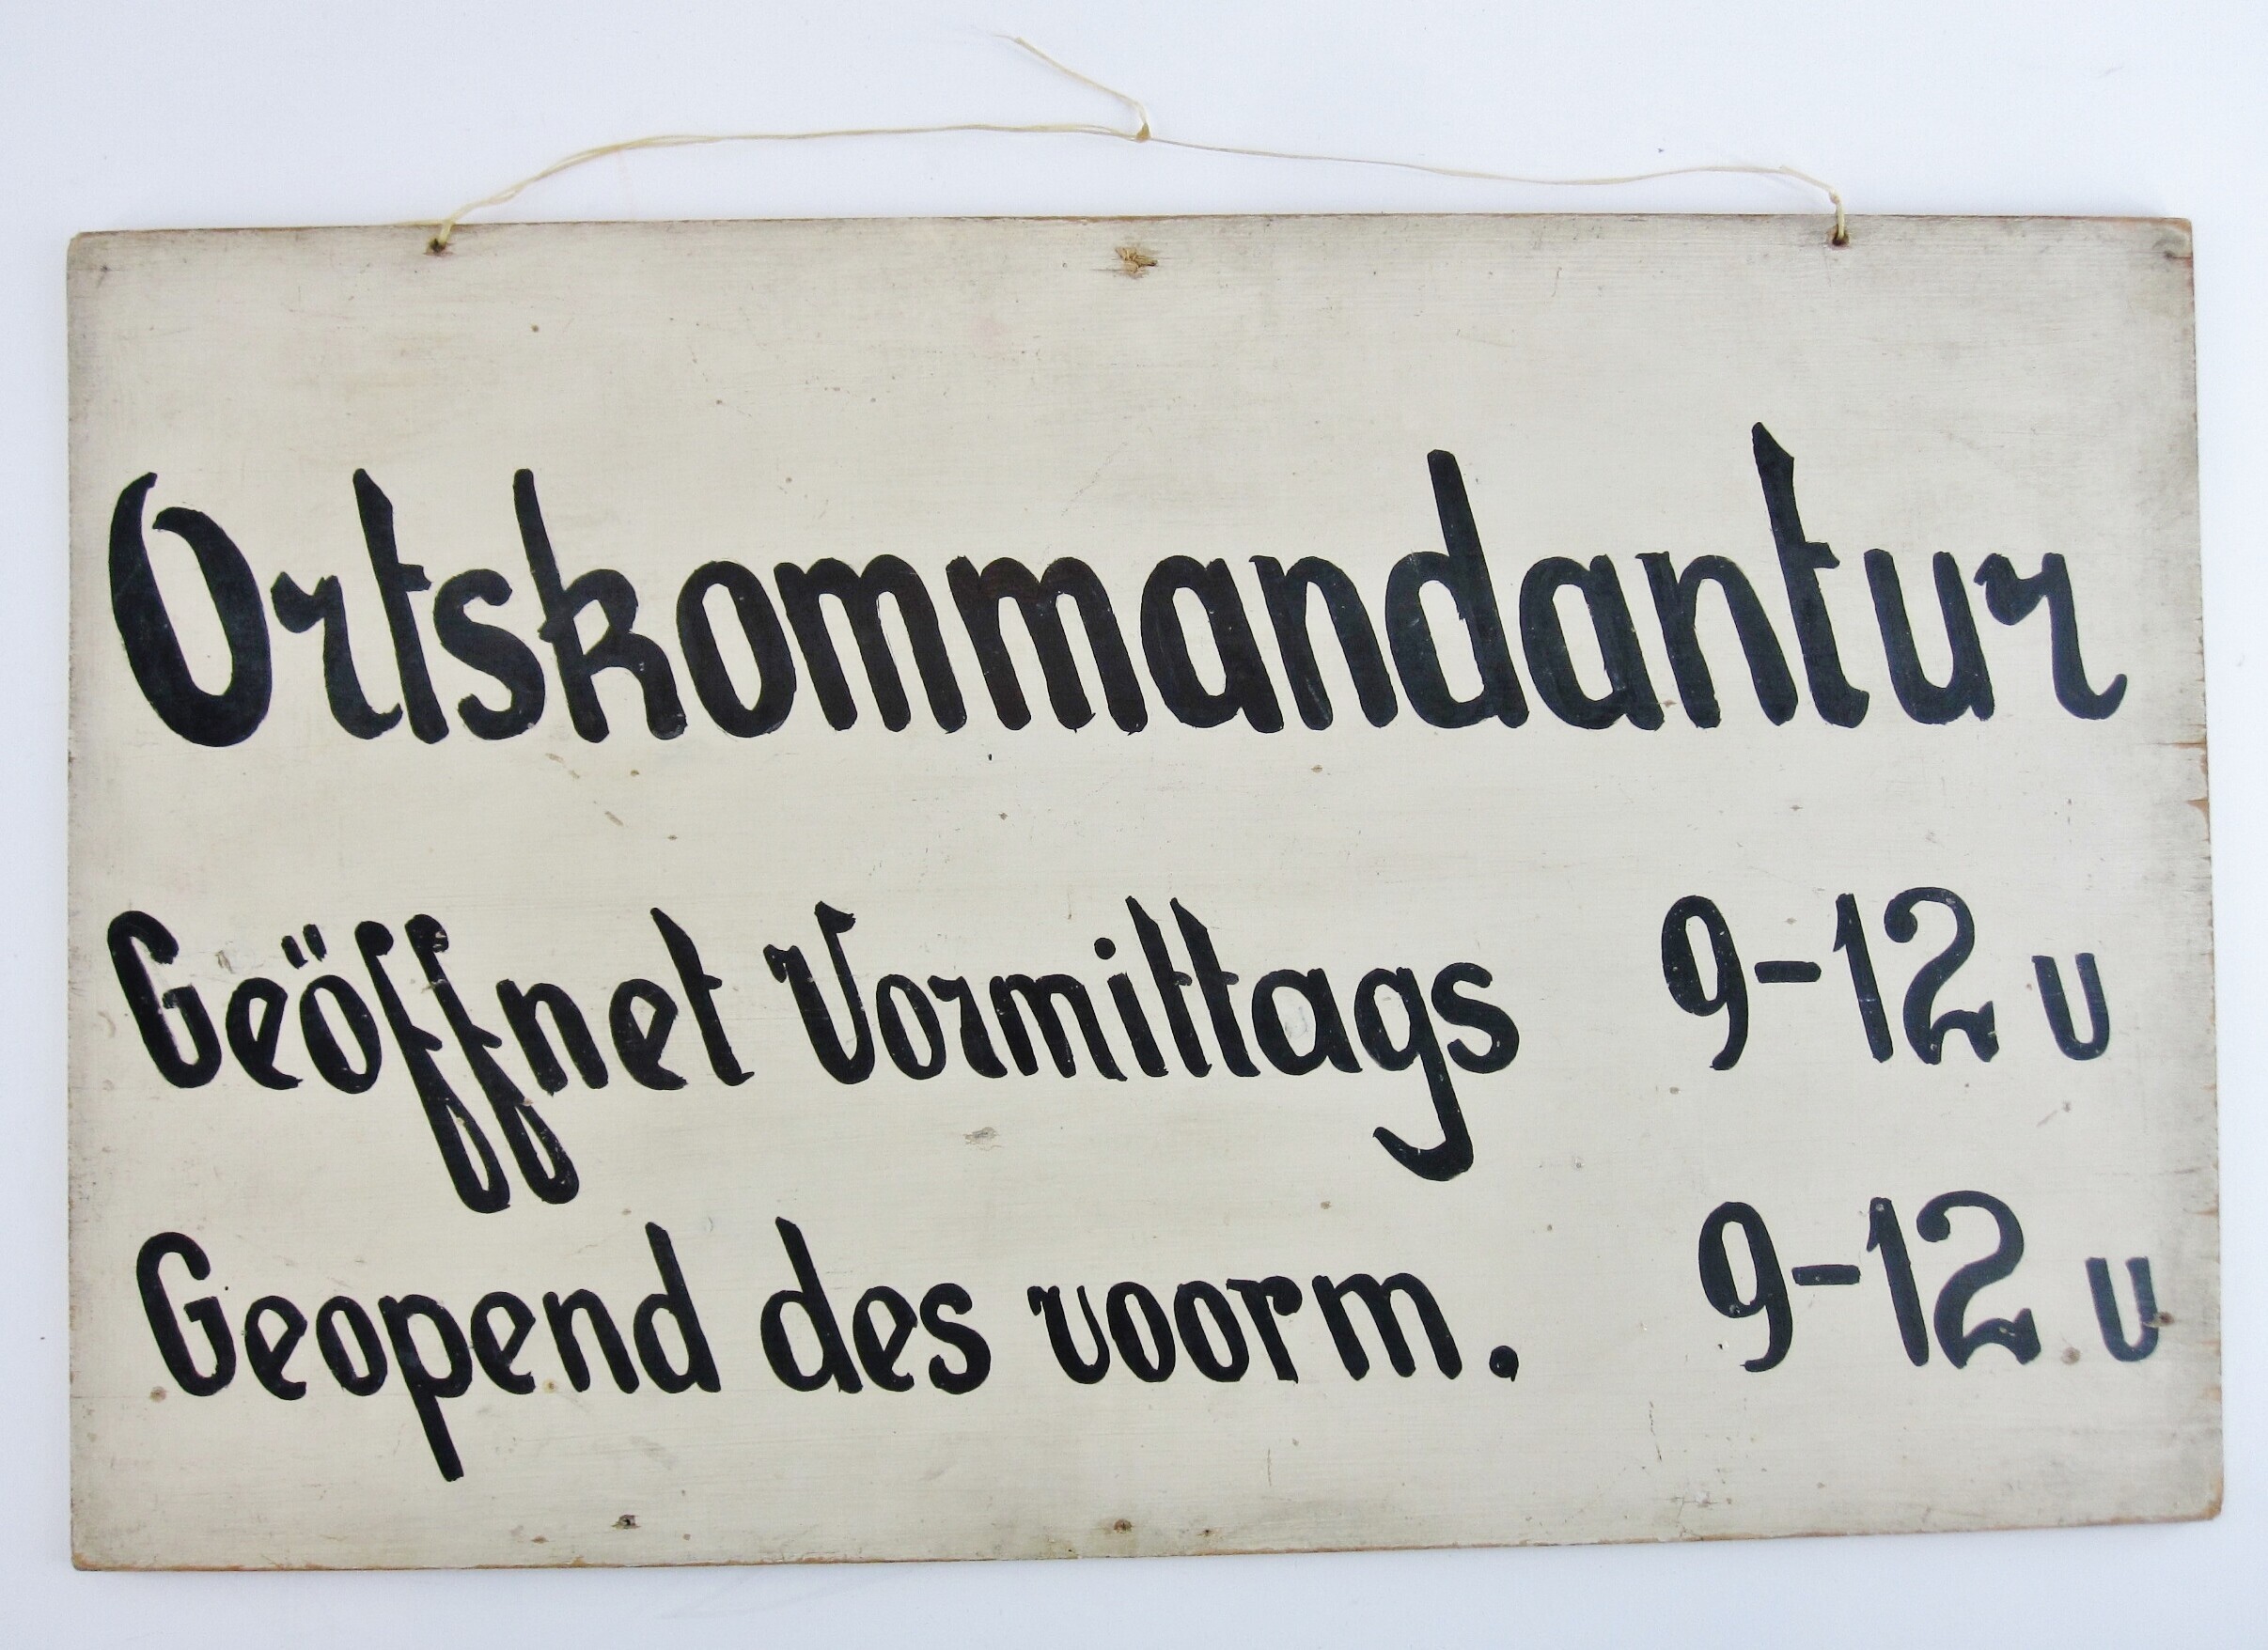 Ortskommandantur
Geöffnet Vormittags 9-12 u
Geopend des voorm. 9-12 u